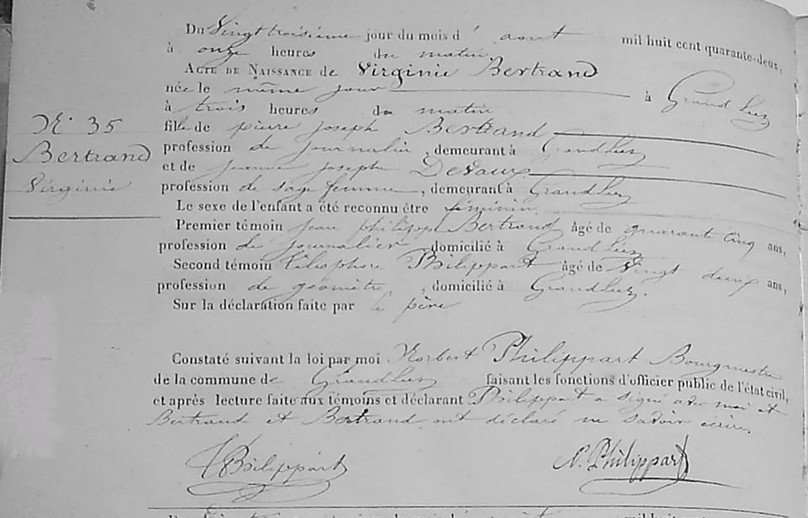 Du Vingt troisieme jour du mois d' aout mil huit cent quarante-deux,
à onze heures du matin
ACTE DE NAISSANCE de Virginie Bertrand
née le même jour à Grand Leez
à trois heures du matin
fille de pierre joseph Bertrand
profession de journalier, demeurant à Grandleez
et de jeanne joseph Devaux
profession de sage femme, demeurant à Grandleez
Le sexe de l'enfant a été reconnu être féminin
Premier témoin jean philippe Bertrand âgé de quarante cinq ans,
profession de journalier domicilié à Grandleez
Second témoin Télésphore Philippart âgé de Vingt deux ans,
profession de géomètre, domicilié à Grandleez.
Sur la déclaration faite par le père
N° 35
Bertrand
Virginie
Constaté suivant la loi par moi Norbert Philippart Bourgmestre
de la commune de Grandleez faisant les fonctions d'officier public de l'état civil,
et après lecture faite aux témoins et déclarant Philippart a signé avec moi et
Bertrand et Bertrand ont déclaré ne savoir écrire.
T Philippart N. Philippart